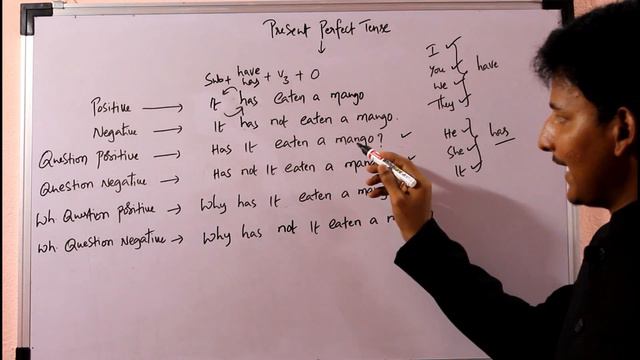 Present Perfect Tense
↓
Sub + have/has + V3 + O
Positive → It has eaten a mango
Negative → It has not eaten a mango.
Question Positive → Has It eaten a mango? ✓
Question Negative → Has not It eaten a
Wh Question Positive → Why has It eaten a
Wh. Question Negative → Why has not It eaten a
I ✓
You ✓
we ✓
They ✓
have
He ✓
She ✓
It ✓
has